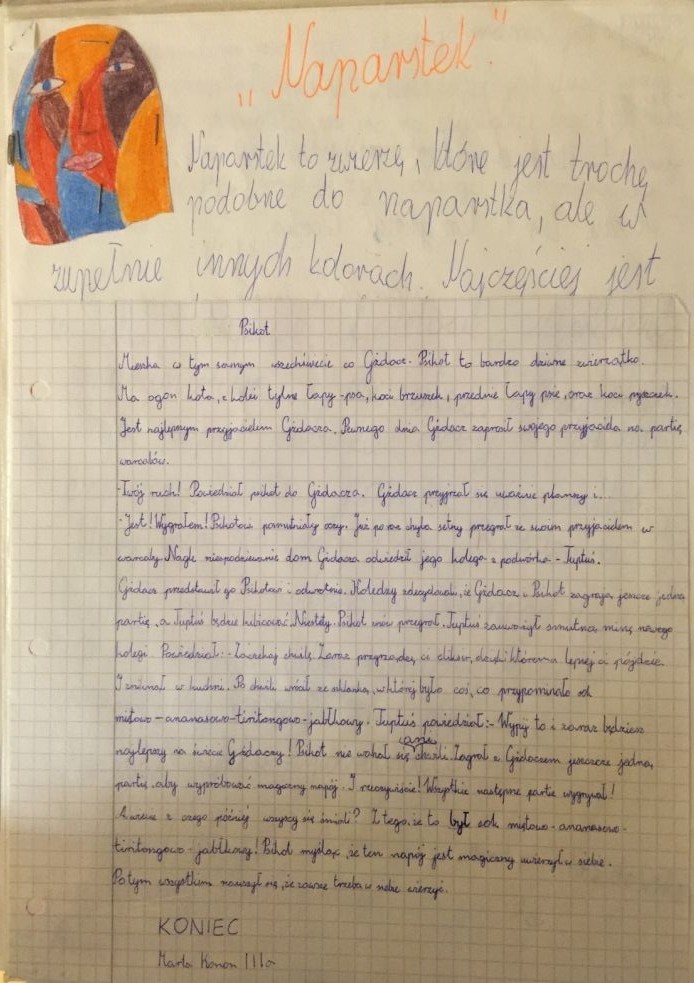 „Naparstek"
Naparstek to zwierzę, które jest trochę
podobne do naparstka, ale w
zupełnie innych kolorach. Najczęściej jest
Psikot
Mieszka w tym samym wszechświecie co Gżdacz. Psikot to bardzo dziwne zwierzątko.
Ma ogon kota, z kolei tylne łapy -psa, koci brzuszek, przednie łapy psie, oraz koci pyszczek.
Jest najlepszym przyjacielem Gżdacza. Pewnego dnia Gżdacz zaprosił swojego przyjaciela na partię
warcabów.
-Twój ruch! Powiedział psikot do Gżdacza. Gżdacz przyjrzał się uważnie planszy i...
-Jest! Wygrałem! Psikotowi posmutniały oczy. Już po raz chyba setny przegrał ze swoim przyjacielem w
warcaby. Nagle niespodziewanie dom Gżdacza odwiedził jego kolega z podwórka - Tuptuś.
Gżdacz przedstawił go Psikotowi i odwrotnie. Koledzy zdecydowali, że Gżdacz i Psikot zagrają jeszcze jedną
partię, a Tuptuś będzie kibicować. Niestety. Psikot znów przegrał. Tuptuś zauważył smutną minę nowego
kolegi. Powiedział: - Zaczekaj chwilę. Zaraz przyrządzę ci eliksir, dzięki któremu lepiej ci pójdzie.
I zniknął w kuchni. Po chwili wrócił ze szklanką, w której było coś, co przypominało sok
miętowo-ananasowo-tiritongowo-jabłkowy. Tuptuś powiedział: - Wypij to i zaraz będziesz
najlepszy na świecie Gżdaczy! Psikot nie wahał się ani chwili. Zagrał z Gżdaczem jeszcze jedną
partię, aby wypróbować magiczny napój. I rzeczywiście! Wszystkie następne partie wygrywał!
A wiecie z czego później wszyscy się śmiali? Z tego, że to był sok miętowo-ananasowo-
tiritongowo-jabłkowy! Psikot myśląc, że ten napój jest magiczny uwierzył w siebie.
Po tym wszystkim nauczył się, że zawsze trzeba w siebie wierzyć.
KONIEC
Marta Konon IIIa